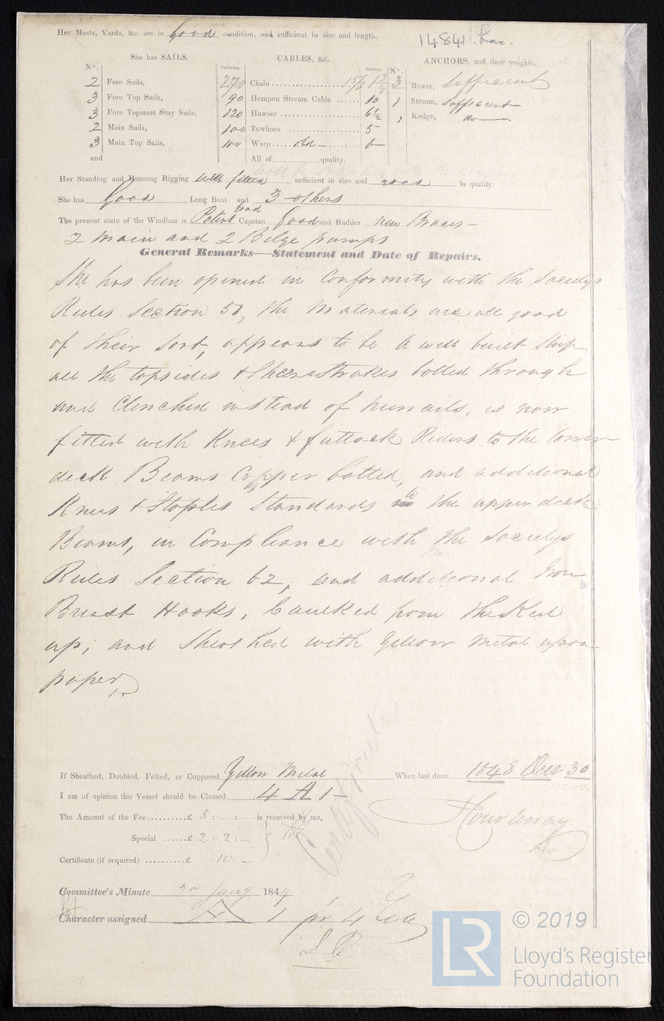 Her Masts, Yards, &c. are in Good condition, and sufficient in size and length.
1484 Lon.
She has SAILS.
CABLES, &c.
ANCHORS, and their weights.
N°.
Fathoms.
Inches.
N°.
2 Fore Sails,
3 Fore Top Sails,
3 Fore Topmast Stay Sails,
2 Main Sails,
3 Main Top Sails,
and
Chain 270
Hempen Stream Cable 90 10
Hawser 120 6½
Towlines 100 5
Warp old 100
All of quality.
3 Bower, Sufficient
1 Stream, Sufficient
1 Kedge, do
Her Standing and Running Rigging well fitted sufficient in size and good in quality.
She has Good Long Boat and 3 others
The present state of the Windlass is Patent Good Capstan Good and Rudder new Braces
2 Main and 2 Bilge pumps
General Remarks—Statement and Date of Repairs.
She has been opened in Conformity with the Societys
Rules Section 50, the Materials are all good
of their Sort, appears to be a well built Ship
all the topsides & Sheerstrakes bolted through
and Clenched instead of treenails, is now
fitted with Knees & futtock Riders to the lower
deck Beams Copper bolted, and additional
Knees & Staples Standards to the upper deck
Beams, in Compliance with the Societys
Rules Section 62, and additional Iron
Breast Hooks, Caulked from the Keel
up, and Sheathed with Yellow Metal upon
paper,
If Sheathed, Doubled, Felted, or Coppered Yellow Metal When last done 1848 Decr 30
I am of opinion this Vessel should be Classed 4 A 1
The Amount of the Fee £ 5 : : is received by me,
Special £ 2 : 2 :
Certificate (if required) £ : 10 :
Certificate
Committee's Minute 2d Jany 1849
Character assigned A 1 pr 4
© 2019
LR
Lloyd's Register
Foundation